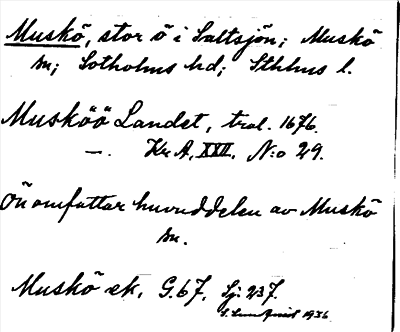 Muskö, stor ö i Saltsjön; Muskö
sn; Sotholms hd; Sthlms l.
Musköö Landet, tral. 1676.
—. Kr A, XXII, N:o 29.
Ön omfattar huvuddelen av Muskö
sn.
Muskö ek, G.67, Sj: 237.
1936